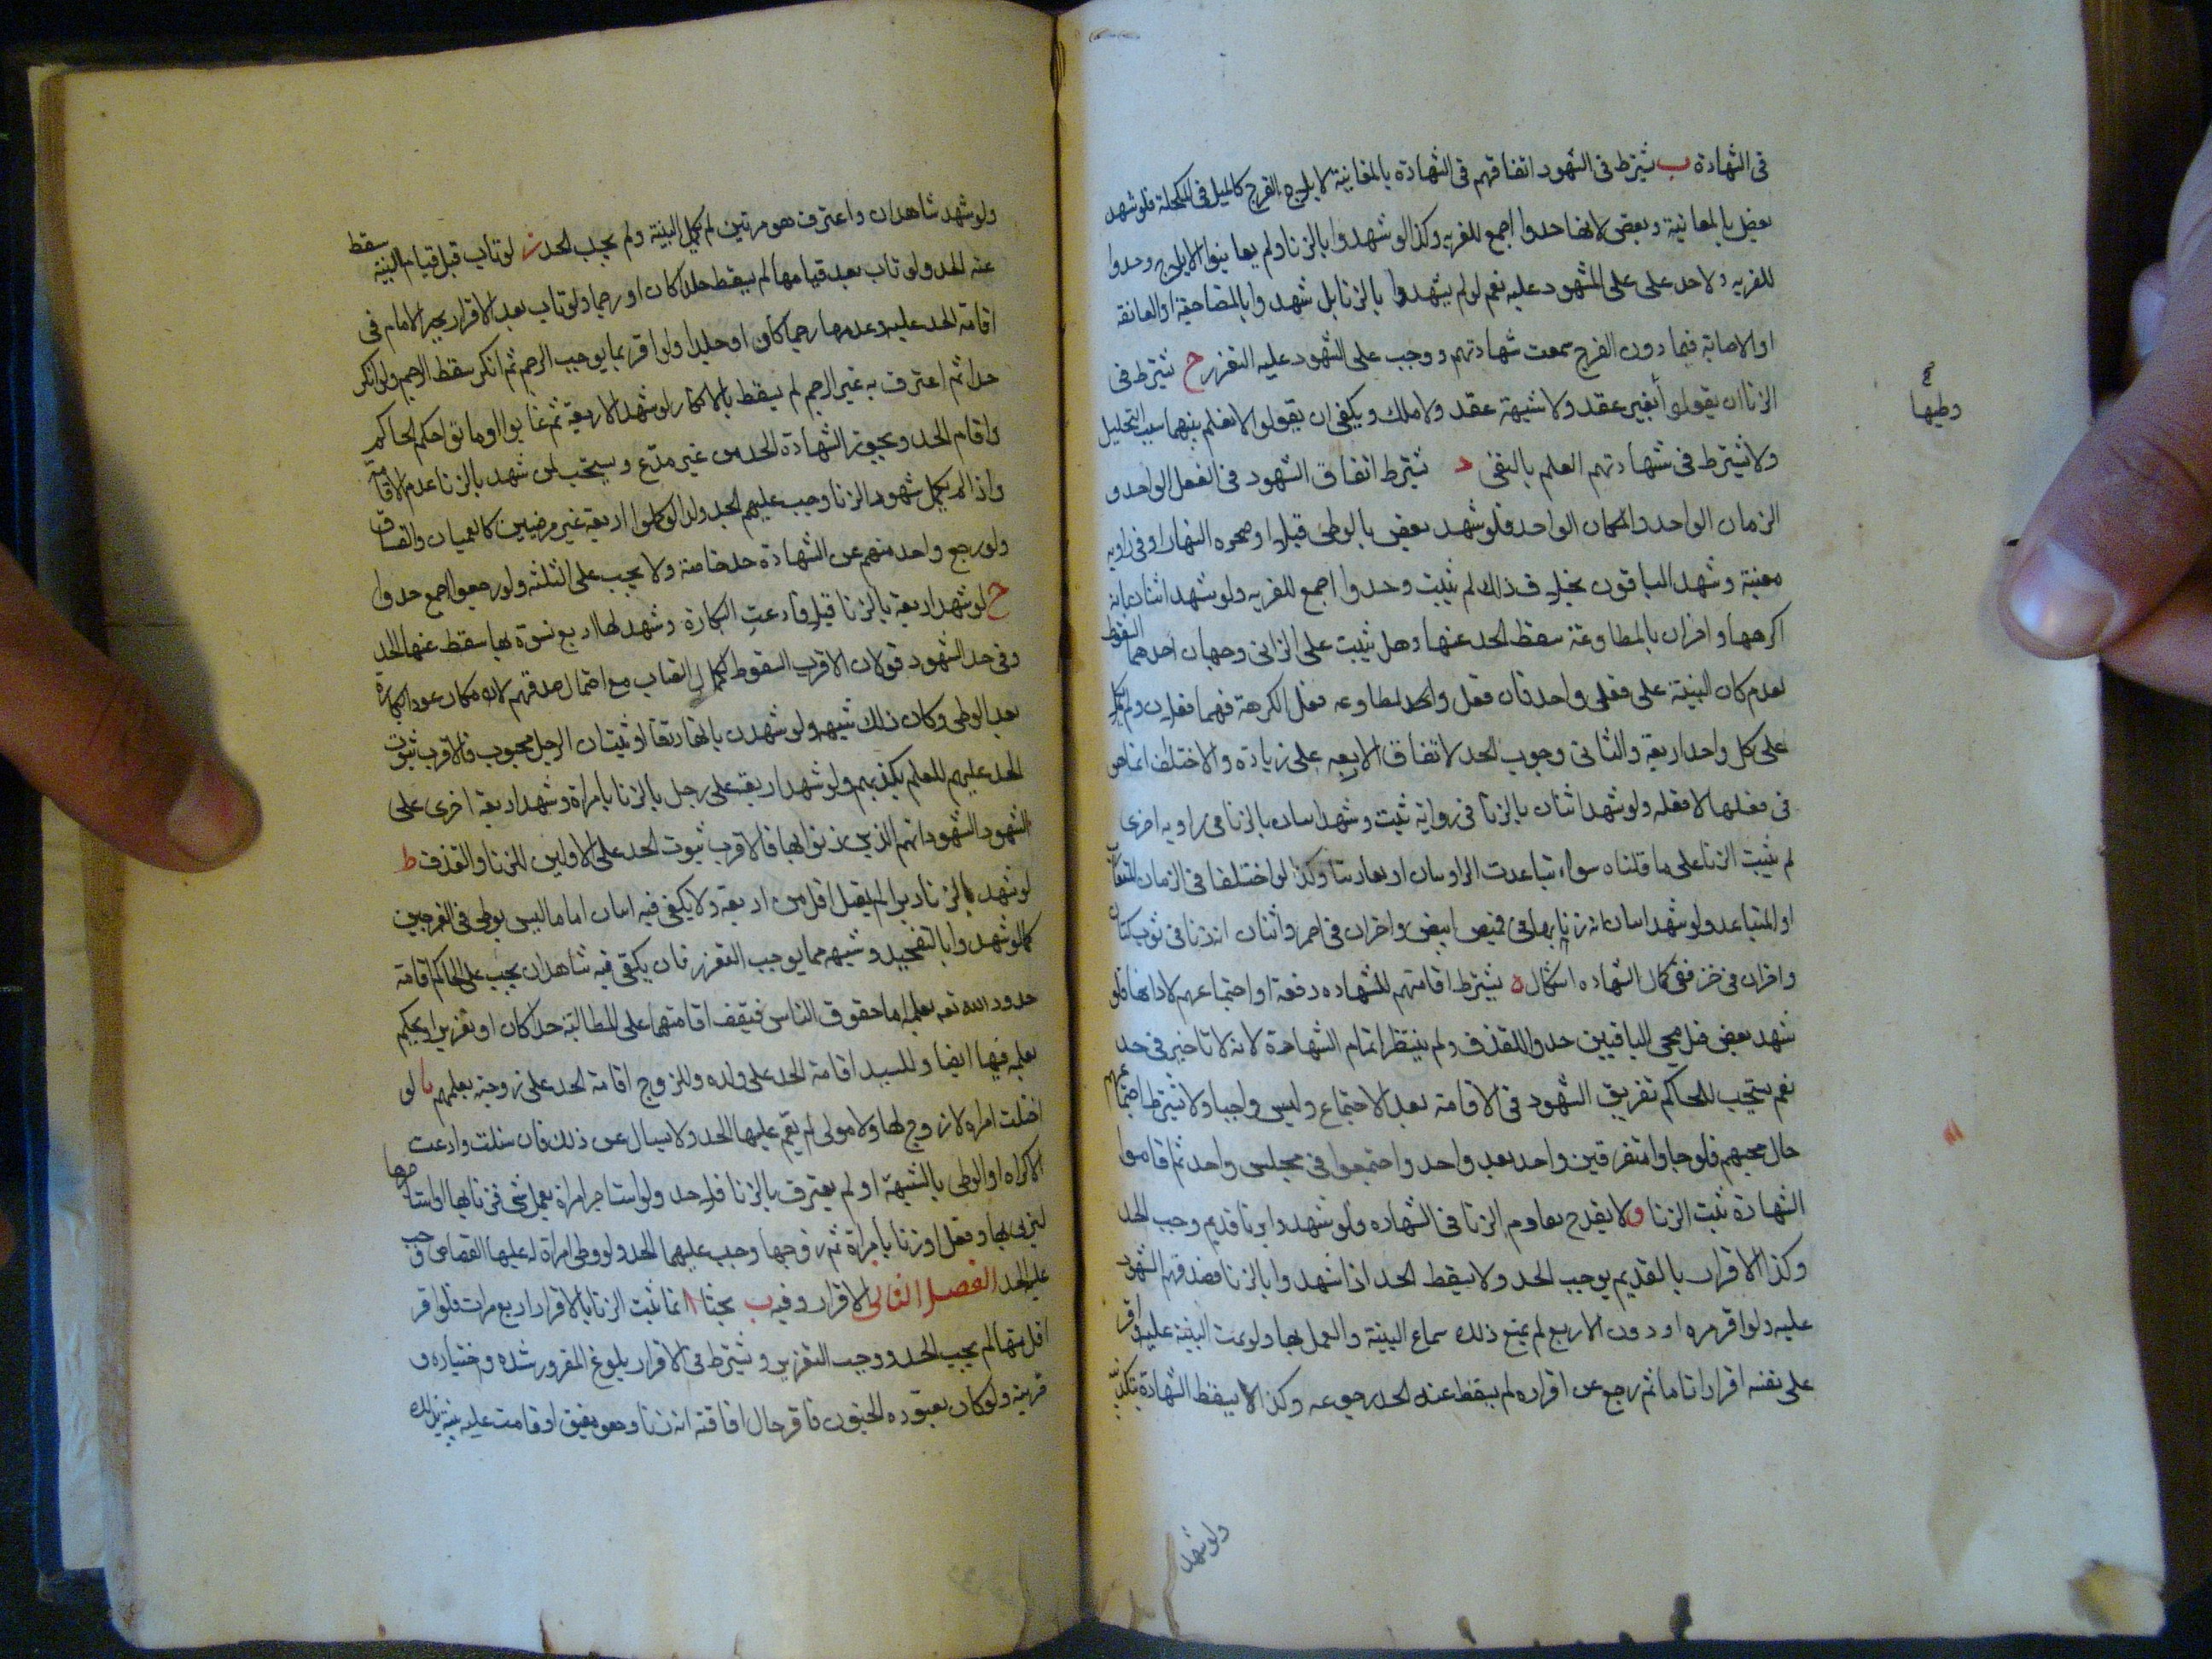 في الشهادة ب يشترط في الشهود اتفاقهم في الشهادة بالمعاينة لايلاج الفرج كالميل في المكحلة فلو شهد
بعض بالمعاينة وبعض لانها حدوا اجمع للفريه وكذا لو شهدوا بالزنا ولم يعاينوا الايلاج وحدوا
للفريه ولا حد على على المشهود عليه نعم لو لم يشهدوا بالزنا بل شهدوا بالمضاجعة او المعانقه
او الاصابة فيما دون الفرج سمعت شهادتهم ووجب على المشهود عليه التعزير ح يشترط في
وطيها
الزنا ان يقولوا بغير عقد ولا شبهة عقد ولا ملك ويكفي ان يقولوا لا نعلم بينهما سبب التحليل
ولا يشترط في شهادتهم العلم بالنفي د يشترط اتفاق الشهود في الفعل الواحد و
الزمان الواحد والمكان الواحد فلو شهد بعض بالوطي قبلا او صحوه النهار او في زاويه
معينة وشهد الباقون بخلاف ذلك لم يثبت وحدوا اجمع للفريه ولو شهد اثنان بانه
اكرهها واخران بالمطاوعة سقط الحد عنها وهل يثبت على الزاني وجهان احدهما السقوط
لعدم كان البينة على فعل واحد فان فعل المطاوعه فعل الكرهة فهما فعلان ولم يكمل
على كل واحد اربعة والثاني وجوب الحد لاتفاق الاربعه على زيادة والاختلاف انما هو
في فعلها لا فعله ولو شهد اثنان بالزنا في زواية ثبت وشهد اسان بالزنا في زاويه اخرى
لم يثبت الزنا على ما قلناه سواء تباعدت الزاوسان او تعاربتا وكذا لو اختلفا في الزمان المتقارب
او المتباعد ولو شهد اسان انه زنا بها في قميص ابيض واخران في احمر واثنان انه زنا في ثوب كتان
واخران في خز ففي كمال الشهاده اشكال ه يشترط اقامتهم للشهاده دفعة او اجتماعهم لادائها فلو
شهد بعض قبل مجي الباقيين حدوا للقذف ولم ينتظر اتمام الشهادة لانه لا تاخير في حد
نعم يستحب للحاكم تفريق الشهود في الاقامة بعد الاجتماع وليس واجبا ولا يشترط اجتماعهم
حال مجيهم فلو جاوا متفرقين واحد بعد واحد واجتمعوا في مجلس واحد ثم اقاموا
الشهادة ثبت الزنا و لا يقدح تعاوم الزنا في الشهاده ولو شهدوا بزنا قديم وجب الحد
وكذا الاقرار بالقديم يوجب الحد ولا يسقط الحد اذا شهدوا بالزنا فصدقهم المشهود
عليه ولو اقر مره او دون الاربع لم يمنع ذلك سماع البينة والعمل بها ولو تمت البينة عليه واقر
على نفسه اقرارا تاما ثم رجع عن اقراره لم يسقط عنه الحد برجوعه وكذا لا يسقط الشهادة بتكذيبه
ولو شهد
ولو شهد شاهدان واعترف هو مرتين لم تكمل البينة ولم يجب الحد ز لو تاب قبل قيام البينة سقط
عنه الحد ولو تاب بعد قيامها لم يسقط حدا كان او رجما ولو تاب بعد الاقرار تخير الامام في
اقامة الحد عليه وعدمها رجما كان او جلدا ولو اقر بما يوجب الرجم ثم انكر سقط الرجم ولو انكر
حدا ثم اعترف به غير الرجم لم يسقط بالانكار ولو شهد الاربعة ثم غابوا او ماتوا حكم الحاكم
واقام الحد ويجوز الشهادة الحد من غير مدع ويستحب لمن شهد بالزنا عدم الاقامة
واذا لم يكمل شهود الزنا وجب عليهم الحد ولذا لو كملوا اربعة غير مرضيين كالعميان والفساق
ولو رجع واحد منهم عن الشهادة حد خاصة ولا يجب على الثلثه ولو رجعوا اجمع حدوا
ح لو شهد اربعة بالزنا قبلا فادعت البكارة وشهد لها اربع نسوة بها سقط عنها الحد
وفي حد الشهود قولان الاقرب السقوط مع احتمال صدقهم لامكان عود البكارة
بعد الوطي وكان ذلك شبهه ولو شهدن بانها رتقا او ثبت ان الرجل مجبوب فالاقرب ثبوت
الحد عليهم للعلم بكذبهم ولو شهد اربعة على رجل بالزنا بامراة وشهد اربعة اخرى على
الشهود الشهود انهم الذين زنوا بها فالاقرب ثبوت الحد على الاولين للزنا والقذف ط
لو شهد بالزنا دبرا لم يقبل اقل من اربعة ولا يكفي فيه اسان اما ما ليس بوطي في الفرجين
كما لو شهدوا بالتفخيد وشبهه مما يوجب التعزير فان يكفي فيه شاهدان يجب على الحاكم اقامة
حدود الله تعه بعلمه اما حقوق الناس فيقف اقامتها على المطالبة حدا كان او تعزيرا ويحكم
بعلمه فيها ايضا وللسيد اقامة الحد على ولده وللزوج اقامة الحد على زوجته بعلمهم يا لو
اختلت امراه لا زوج لها ولا مولى لم يقم عليها الحد ولا يسال عن ذلك فان سئلت وادعت
الاكراه او الوطي بالشبهة او لم يعترف بالزنا فلا حد ولو استاجر امراة بعمل شي فزنا بها او استاجرها
ليزني بها وفعل او زنا بامراة ثم زوجها وجب عليهما الحد ولو وطي امراة له عليها القصاص وجب
عليه الحد الفصل الثاني الاقرار وفيه ب بحثا ا انما يثبت الزنا بالاقرار اربع مرات فلو اقر
اقل منها لم يجب الحد ووجب التعزير ويشترط في الاقرار بلوغ المقر ورشده واختياره و
قرينه ولو كان يعتوره الجنون فاقر حال افاقته انه زنا وهو مفيق او قامت عليه بينة بذلك